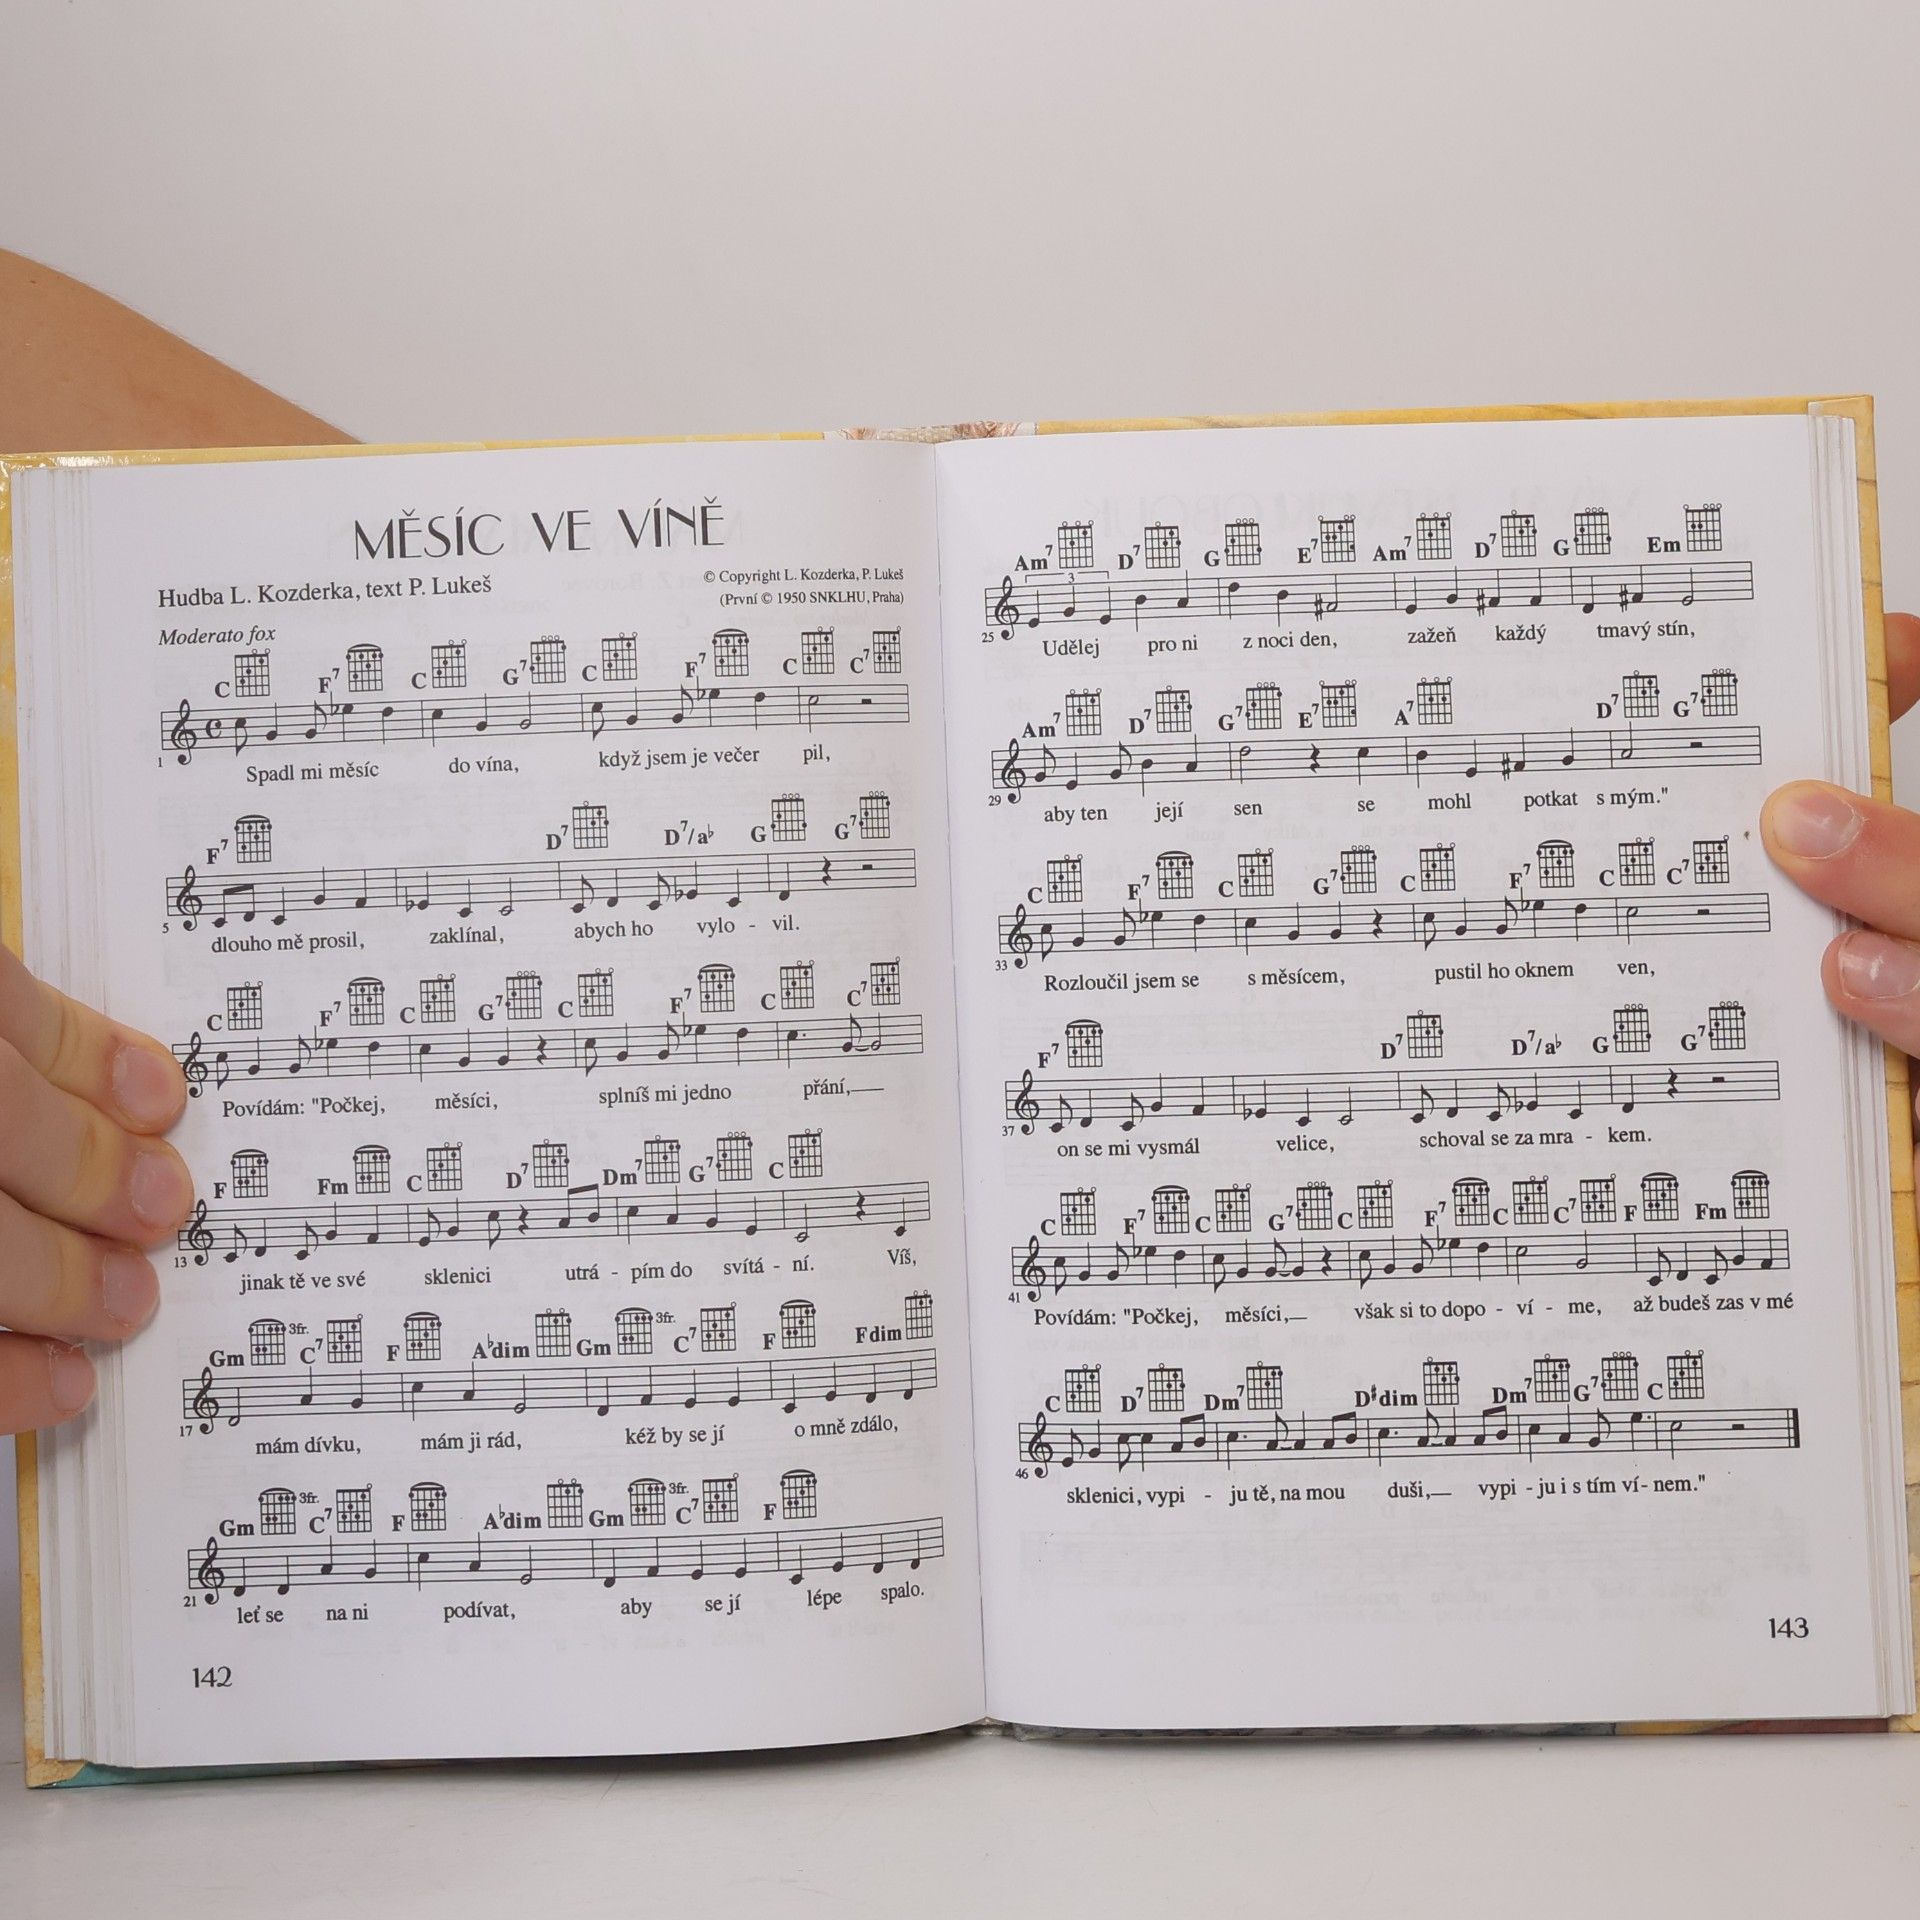 MĚSÍC VE VÍNĚ
Hudba L. Kozderka, text P. Lukeš
© Copyright L. Kozderka, P. Lukeš
(První © 1950 SNKLHU, Praha)
Moderato fox
C F7 C G7 C F7 C C7
1
Spadl mi měsíc do vína, když jsem je večer pil,
F7 D7 D7/a♭ G G7
5
dlouho mě prosil, zaklínal, abych ho vylo - vil.
C F7 C G7 C F7 C C7
Povídám: "Počkej, měsíci, splníš mi jedno přání,
F Fm C D7 Dm7 G7 C
13
jinak tě ve své sklenici utrá - pím do svítá - ní. Víš,
Gm 3fr. C7 F A♭dim Gm 3fr. C7 F Fdim
17
mám dívku, mám ji rád, kéž by se jí o mně zdálo,
Gm 3fr. C7 F A♭dim Gm 3fr. C7 F
21
leť se na ni podívat, aby se jí lépe spalo.
142
Am7 D7 G E7 Am7 D7 G Em
3
25
Udělej pro ni z noci den, zažeň každý tmavý stín,
Am7 D7 G7 E7 A7 D7 G7
29
aby ten její sen se mohl potkat s mým."
C F7 C G7 C F7 C C7
33
Rozloučil jsem se s měsícem, pustil ho oknem ven,
F7 D7 D7/a♭ G G7
37
on se mi vysmál velice, schoval se za mra - kem.
C F7 C G7 C F7 C C7 F Fm
41
Povídám: "Počkej, měsíci, však si to dopo - ví - me, až budeš zas v mé
C D7 Dm7 D♯dim Dm7 G7 C
46
sklenici, vypi - ju tě, na mou duši, vypi - ju i s tím ví- nem."
143